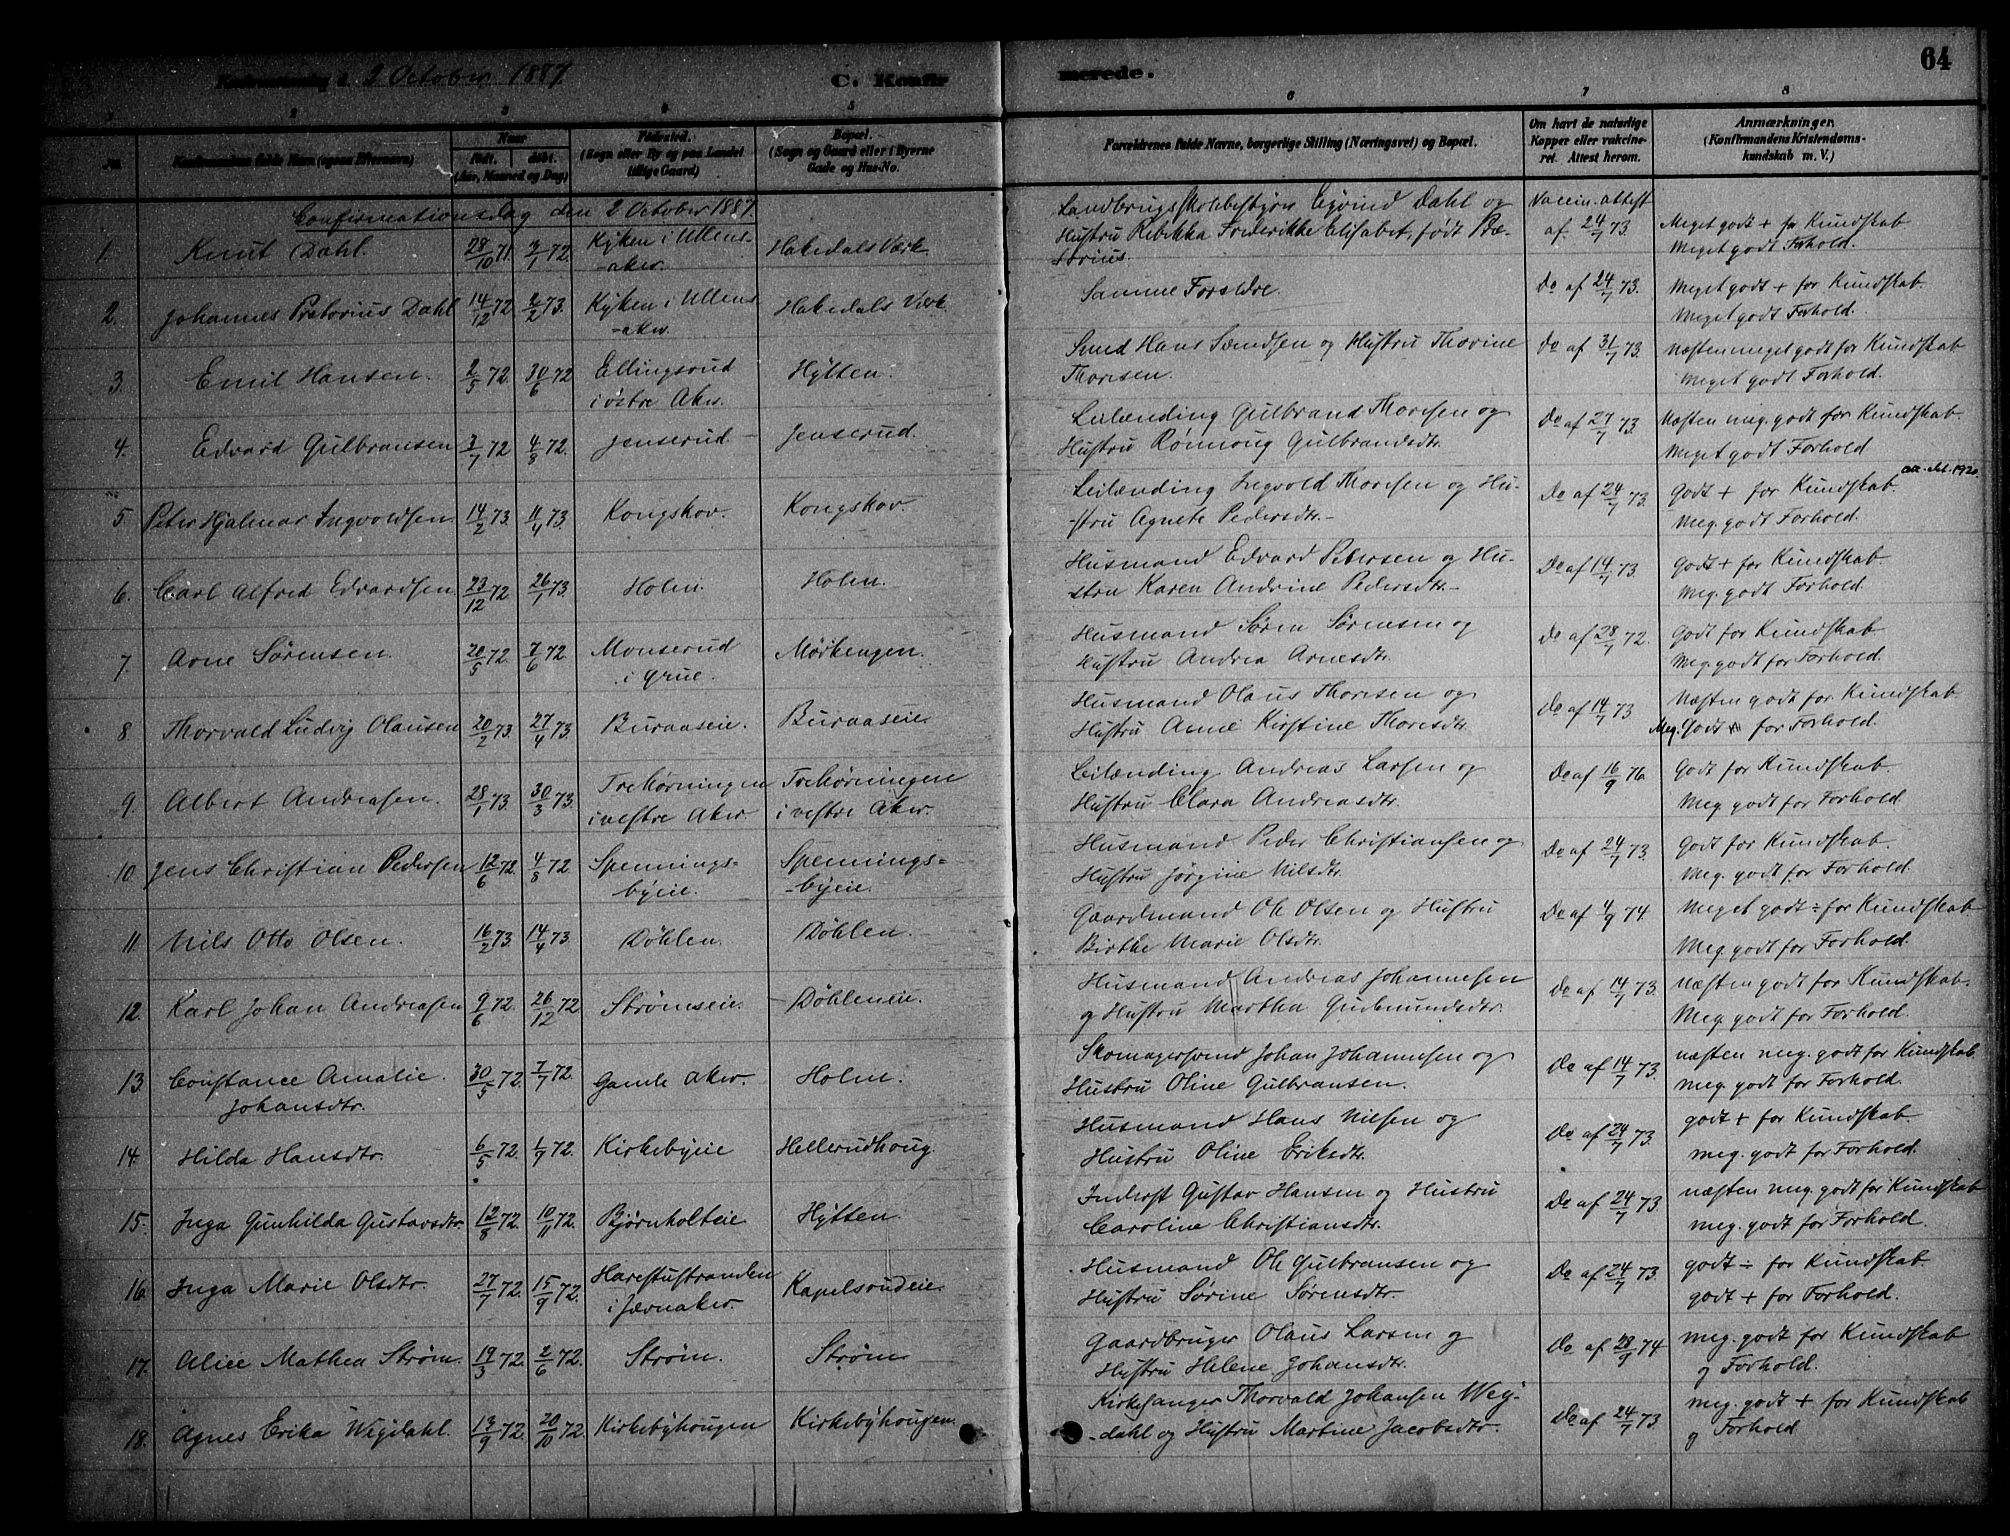 64
Konfirmationsdag d. 2 October 1887.
C. Konfirmerede.
1 2 3 4 5 6 7 8
No.
Konfirmandens fulde Navn (ogsaa Efternavn)
Naar
født. døbt.
(Aar, Maaned og Dag)
Fødested.
(Sogn eller By og paa Landet
tillige Gaard)
Bopæl.
(Sogn og Gaard eller i Byerne
Gade og Hus-No.
Forældrenes fulde Navne, borgerlige Stilling (Næringsvei) og Bopæl.
Om havt de naturlige
Kopper eller vakcine-
ret. Attest herom.
Anmærkninger.
(Konfirmandens Kristendoms-
kundskab m. V.)
Confirmationsdag den 2 October 1887.
1. Knut Dahl. 28/10 71. 3/1 72. Kyken i Ullens-
-aker. Hakedals Værk
Landbrugsskolebestyrer Ejvind Dahl og
Hustru Rebekka Frederikke Elisabet, født Præ-
torius.
Vaccin. attest
af 24/7 73. Meget godt + for Kundskab
Meget godt Forhold.
2. Johannes Pretorius Dahl 14/12 72 2/2 73. Kyken i Ullens
-aker. Hakedals Værk
Samme Forældre. Do af 24/7 73. Meget godt + for Kundskab.
Meget godt Forhold.
3. Emil Hansen. 2/5 72. 30/6 72 Ellingsrud
i østre Aker. Hytten.
Smed Hans Svendsen og Hustru Thorine
Thoresen. Do af 31/7 73. Næsten meget godt for Kundskab
Meget godt Forhold.
4. Edvard Gulbransen 3/7 72 4/8 72. Jenserud Jenserud.
Leilænding Gulbrand Thoresen og
Hustru Rønnoug Gulbrandsdtr. Do af 27/7 73. Næsten meg. godt for Kundskab.
Meget godt Forhold
att. det. 1920
5. Peter Hjalmar Ingvoldsen. 14/2 73. 11/4 73. Kongskov. Kongskov.
Leilænding Ingvold Thoresen og Hu-
-stru Agnete Pedersdtr.- Do af 24/7 73. Godt + for Kundskab.
Meg. godt Forhold.
6. Carl Alfred Edvardsen 23/12 72. 26/1 73. Holm. Holm.
Husmand Edvard Petersen og Hu-
stru Karen Andrine Pedersdtr.- Do af 14/7 73. Godt + for Kundskab
Meg. godt Forhold.
7. Arne Sørensen. 20/5 72. 7/6 72. Monserud
i Grue. Mørkengen.
Husmand Søren Sørensen og
Hustru Andrea Arnesdtr. Do af 28/7 72. Godt for Kundskab
Meg. godt for Forhold.
8 Thorvald Ludvig Olausen 20/2 73. 27/4 73. Buraaseie. Buraaseie.
Husmand Olaus Thoresen og
Hustru Anne Kirstine Thoresdtr. Do af 14/7 73 Næsten godt for Kundskab
Meg. Godt for Forhold.
9. Albert Andreasen. 28/1 73. 30/3 73. Trehørningen
i vestre Aker Trehørningen
i vestre Aker.
Leilænding Andreas Larsen og
Hustru Clara Andreasdtr. Do af 16/9 76 Godt for Kundskab.
Meg. godt for Forhold.
10. Jens Christian Pedersen 12/6 72. 4/8 72 Spennings-
byeie. Spennings=
-byeie.
Husmand Peder Christiansen og
Hustru Jørgine Nilsdtr. Do af 24/7 73. Godt for Kundskab.
Meg. godt for Forhold.
11. Nils Otto Olsen. 16/2 73. 14/4 73. Døhlen. Døhlen.
Gaardmand Ole Olsen og Hustru
Birthe Marie Olsdtr. Do af 4/9 74. Meget godt ÷ for Kundskab
Meg. godt for Forhold.
12. Karl Johan Andreasen 9/6 72. 26/12 72 Strømseie. Døhleneie.
Husmand Andreas Johannesen
og Hustru Martha Gudmundsdtr. Do af 14/7 73. Næsten godt for Kundskab.
Meg. godt for Forhold.
13. Constance Amalie.
Johansdtr. 30/5 72. 7/7 72. Gamle Aker. Holm.
Skomagersvend Johan Johannesen og
Hustru Oline Gulbransen. Do af 14/7 73. næsten meg. godt for Kundskab
meg. godt for Forhold.
14. Hilda Hansdtr. 6/5 72. 1/9 72. Kirkebyeie Hellerudhoug.
Husmand Hans Nilsen og
Hustru Oline Eriksdtr. Do af 24/7 73. godt + for Kundskab.
meg. godt for Forhold.
15. Inga Gunhilda Gustavsdtr. 12/8 72. 10/11 72. Bjørnholteie Hytten.
Inderst Gustav Hansen og Hustru
Caroline Christiansdtr. Do af 24/7 73. næsten meg. godt for Kundskab
meg. godt for Forhold.
16. Inga Marie Olsdtr. 27/7 72. 15/9 72. Harestustranden
i Jævnaker. Kapelsrudeie.
Husmand Ole Gulbransen og
Hustru Sørine Sørensdtr. Do af 24/7 73. godt ÷ for Kundskab
godt + for Forhold.
17. Alice Mathea Strøm. 19/3 72. 2/6 72. Strøm. Strøm
Gaardbruger Olaus Larsen og
Hustru Helene Johansdtr. Do af 28/9 74 meg. godt for Kundskab
og Forhold.
18. Agnes Erika Wegdahl. 13/9 72. 20/10 72. Kirkebyhougen Kirkebyhougen.
Kirkesanger Thorvald Johansen Weg-
-dahl og Hustru Martine Jacobsdtr. Do af 24/7 73. meg. godt + for Kundskab
og Forhold